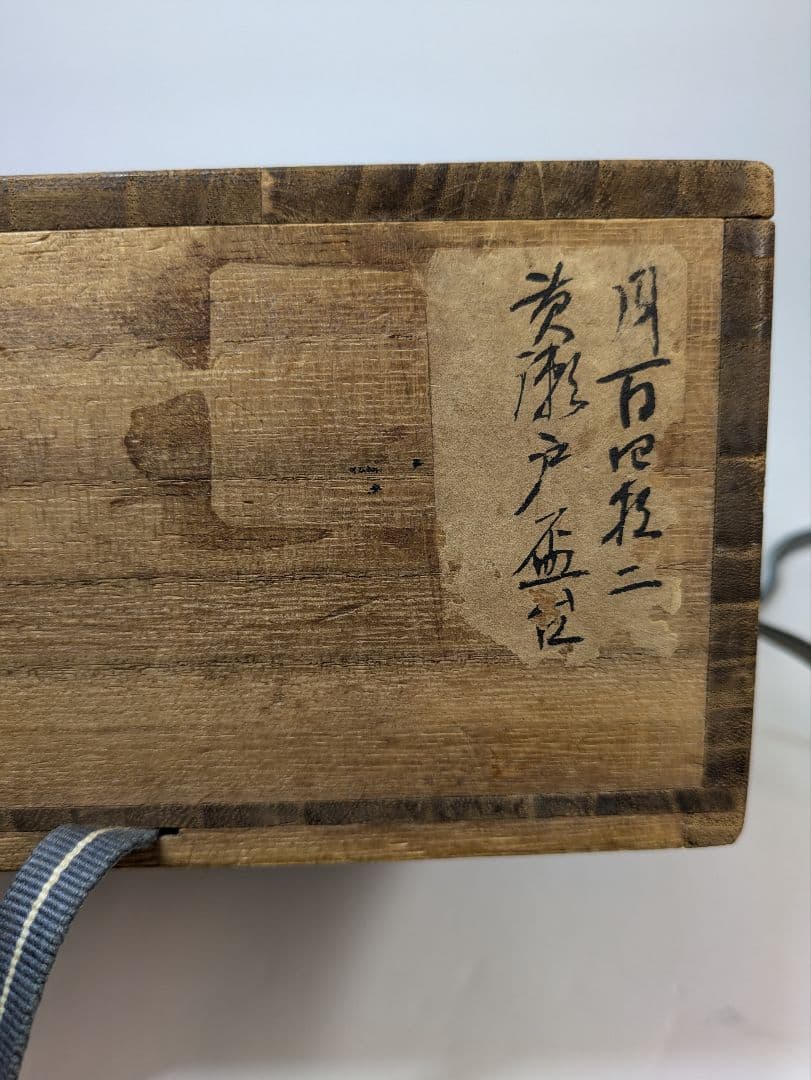 百四拾二
黄瀬戸盃